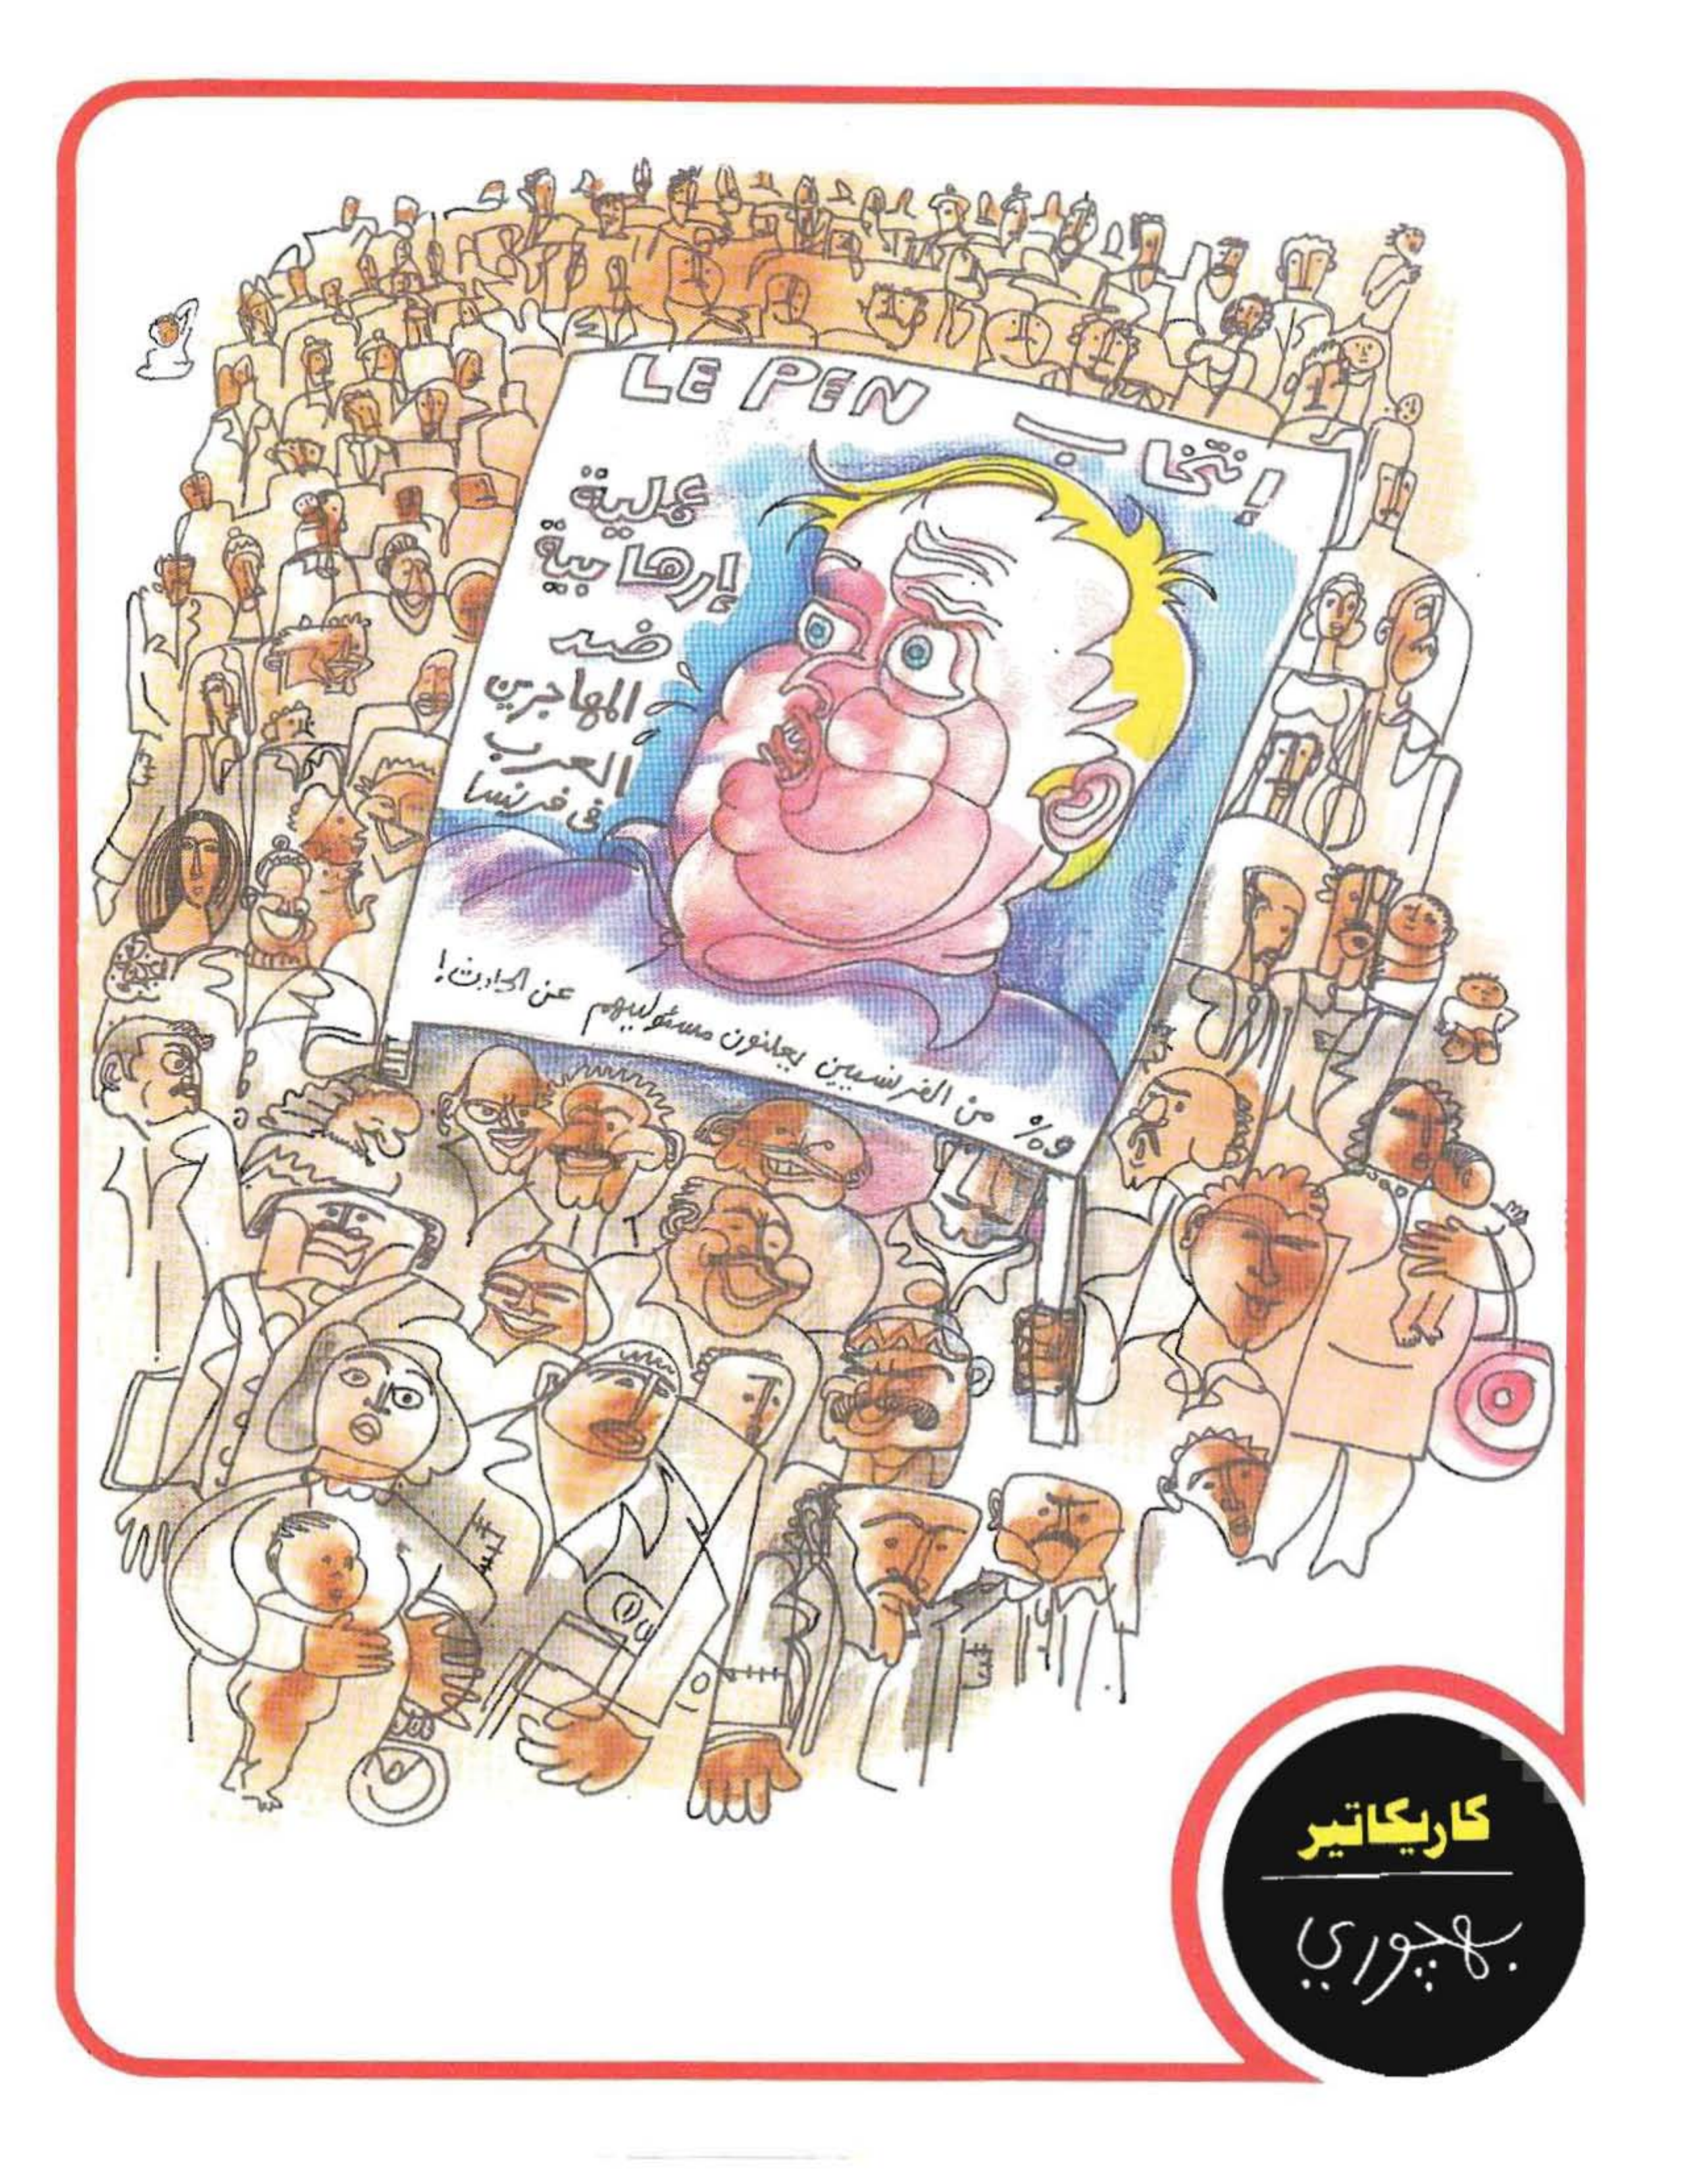 LE PEN إنتخاب
عملية
إرهابية
ضد
المهاجرين
العرب
فى فرنسا
٩٪ من الفرنسيين يعلنون مسئوليهم عن الحادث!
كاريكاتير
بهجوري